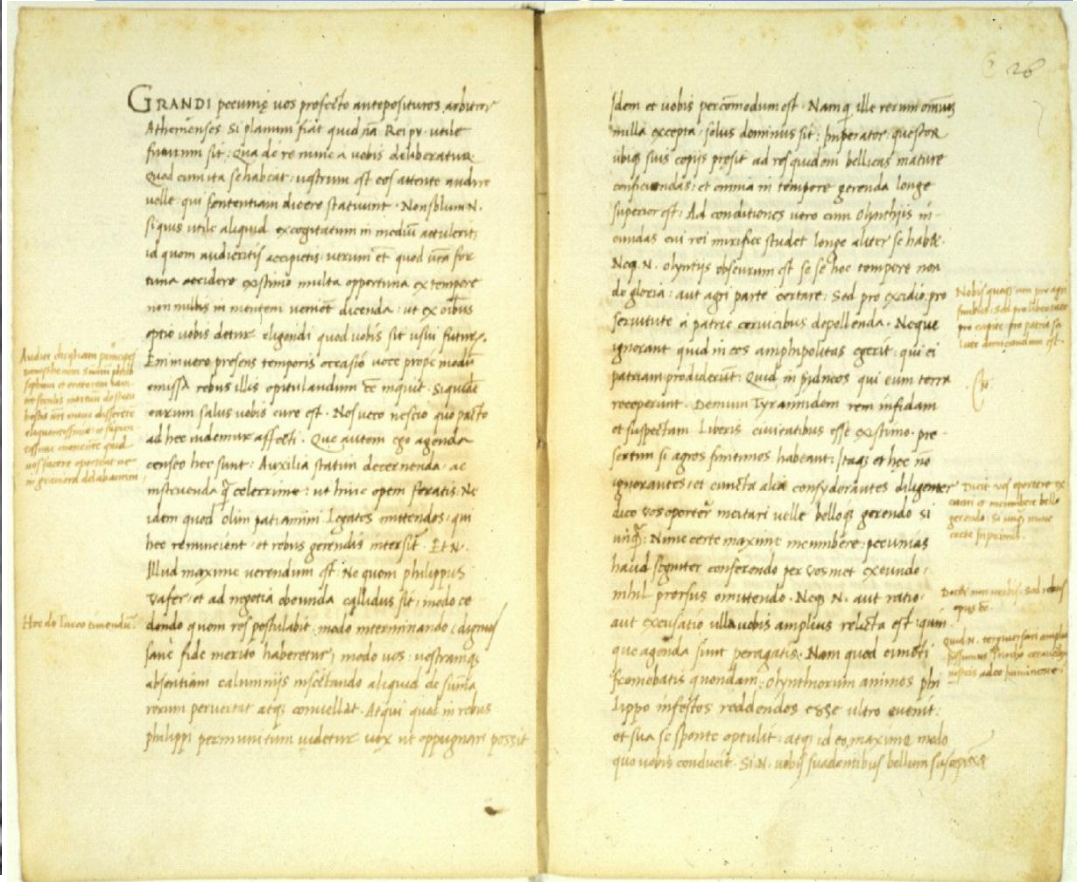 GRANDI pecunię uos profecto anteposituros arbitror
Athenienses Si planum fiat quid nã Rei pu. utile
futurum sit: Qua de re nunc a uobis deliberatur
Quod cum ita se habeat: uestrum est eos attente audire
uelle qui sententiam dicere statuunt. Non solum N.
si quis utile aliquid excogitatum in mediũ attulerit
id quom audieritis accipietis: uerum et quod urã for
tuna accidere existimo multa opportuna ex tempore
non nullis in mentem ueniet dicenda: ut ex oibus
optio uobis detur eligendi quod uobis sit usui
Enimuero presens temporis occasio uoce prope modũ
emissa rebus illis opitulandum eẽ inquit. Siquidẽ
earum salus uobis cure est. Nos uero nescio quo pacto
ad hec uidemur affecti. Que autem ego agenda
censeo hec sunt: Auxilia statim decernenda. ac
instruenda q̃ celerrime: ut hinc opem feratis: Ne
idem quod olim patiamini. Legatos mittendos: qui
hec renuncient et rebus gerendis intersĩt. Et N.
Illud maxime uerendum est: Ne quom philippus
Vafer: et ad negotia obeunda callidus sit: modo ce
dendo quom res postulabit: modo interminando (dignus
sane fide merito haberetur) modo uos: uestramq;
absentiam calumnijs insectando aliquid de sũma
rerum peruertat atq; conuellat. Atqui quod in rebus
philippi permunitum uidetur uix ut oppugnari possit
Hoc de Turco timendũ.
26
Idem et uobis percõmodum est. Namq; ille rerum omniũ
nulla excepta. solus dominus sit: Imperator: questor
ubiq; suis copijs presit ad res quidem bellicas mature
conficiendas: et omnia in tempore gerenda longe
superior est: Ad conditiones uero cum Olynthijs in-
eundas cui rei mirifice studet longe aliter se habet.
Neq. N. olyntijs obscurum est se se hoc tempore non
de gloria: aut agri parte certare: Sed pro excidio: pro
seruitute a patrie ceruicibus depellenda. Neque
ignorant quid in eos amphipolitas egerit: qui ei
patriam prodiderũt: Quid in pydneos qui eum terra
receperunt. Demum Tyrannidem rem infidam
et suspectam Liberis ciuitatibus esse existimo. pre-
sertim si agros finitimos habeant: Itaq; et hec nõ
ignorantes: et cuncta alia consyderantes diligenter
dico vos oportere incitari uelle belloq; gerendo si
unq̃: Nunc certe maxime incumbere: pecunias
haud segniter conferendo per vos met exeundo:
nihil prorsus omittendo. Neq. N. aut ratio.
aut excusatio ulla uobis amplius relicta est: quin
que agenda sunt peragatis. Nam quod
quondam: Olynthiorum animos phi
lippo infestos reddendos esse ultro euenit:
et sua se sponte optulit: atq; id eo maxime modo
quo uobis conducit. Si N. uobis suadentibus bellum
Nobis quoq; non pro agri
finibus: sed pro libertate
pro capite pro patria
est.
Dicit vos oportere
incumbere bello
gerendo: Si unq; nunc
certe
non uerbis. sed rebus
opus eẽ.